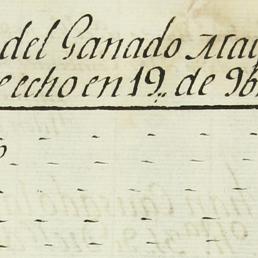 del Ganado May
echo en 19,, de 96